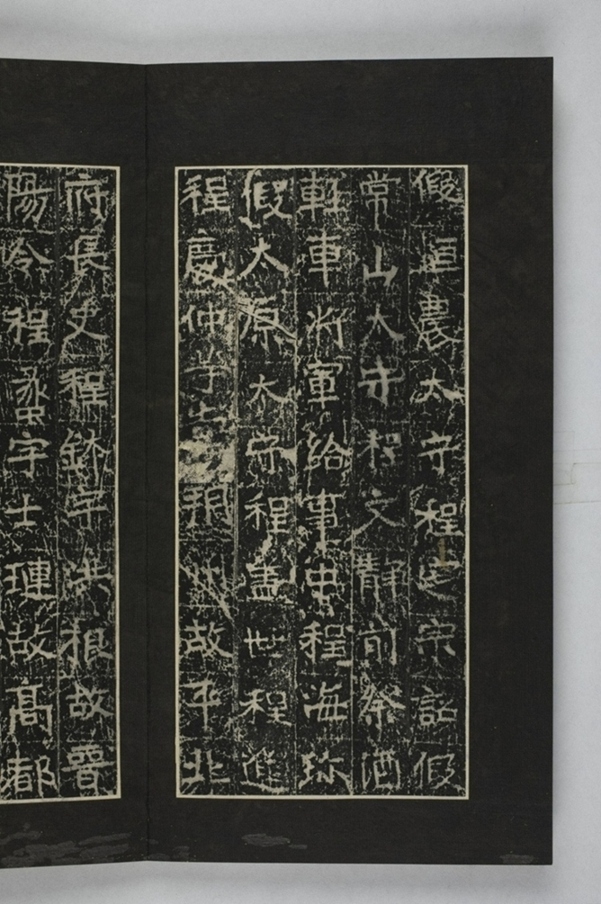 假恒農太守程定宗詔假
常山太守程文靜前祭酒
輕車將軍給事中程海珍
假太原太守程進世程進
程慶仲 故平北
府長史程 字洪根故晉
陽令程蚕字士璉故高都